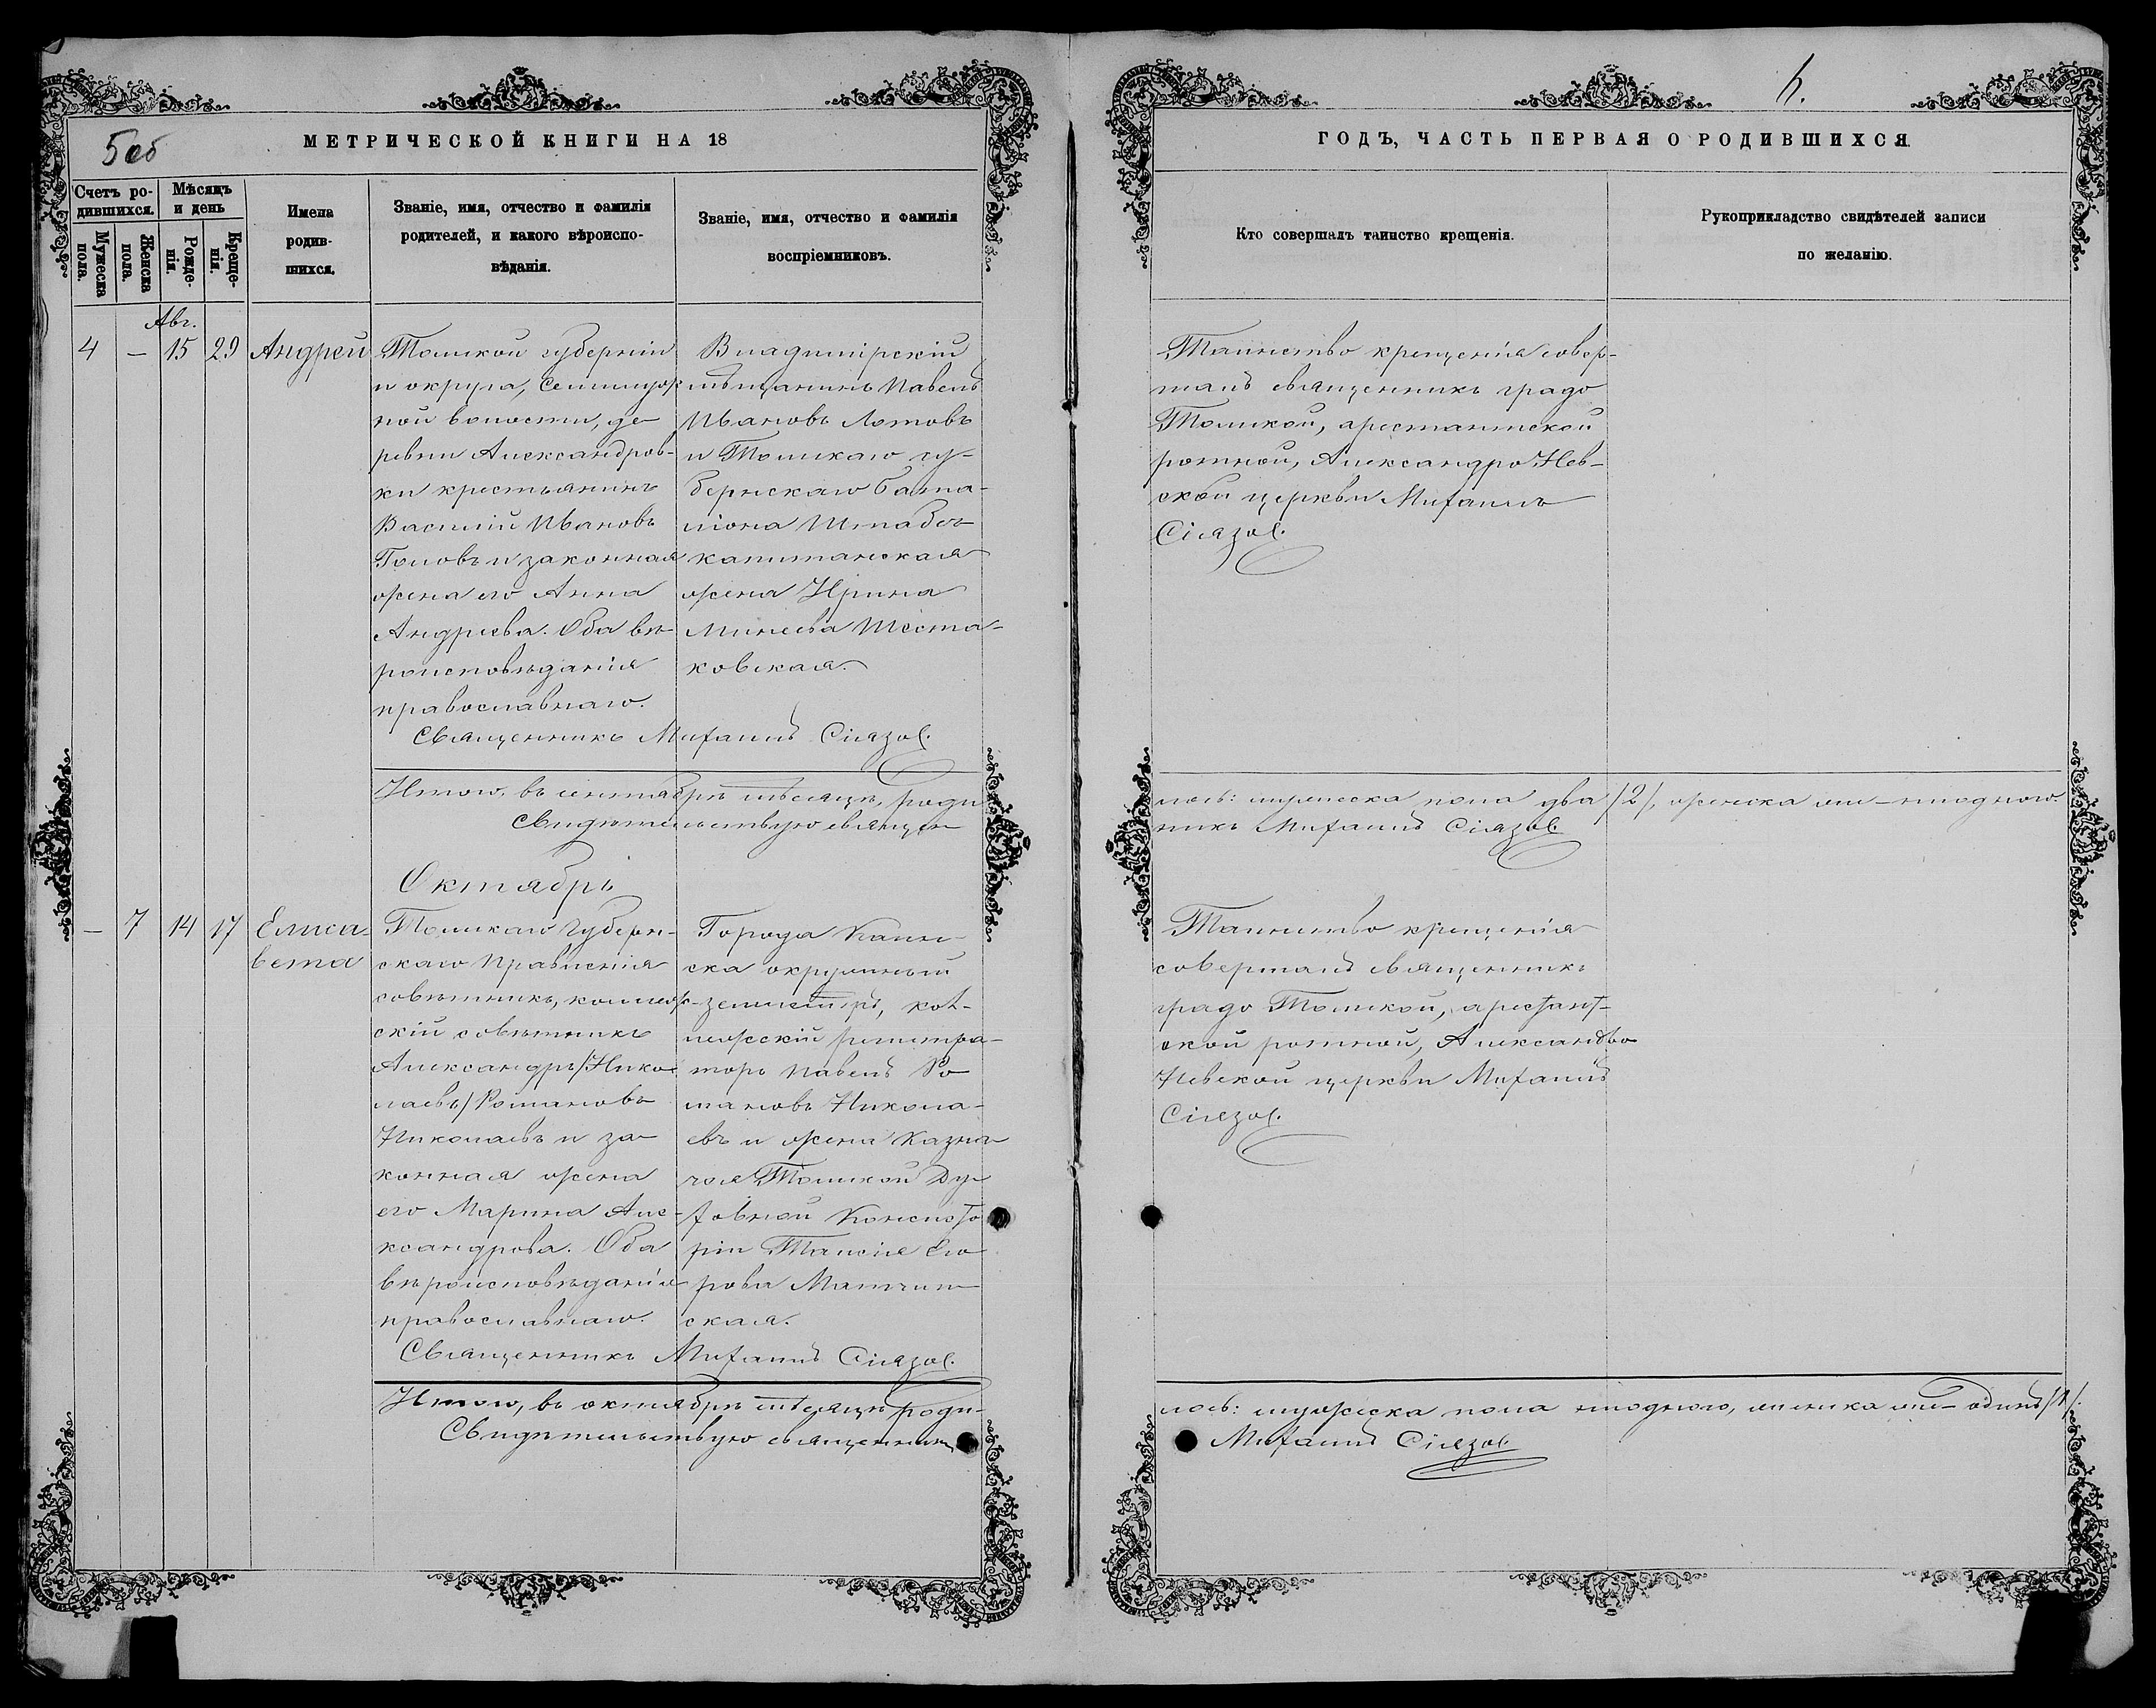 5 об
МЕТРИЧЕСКОЙ КНИГИ НА 18
Счетъ ро-
дившихся.
Мужеска пола.
Женска пола.
Мѣсяцъ
и день
Рожде-
нія.
Креще-
нія.
Имена
родив-
шихся.
Званіе, имя, отчество и фамилія
родителей, и какого вѣроиспо-
вѣданія.
Званіе, имя, отчество и фамилія
воспріемниковъ.
Авг.
4 — 15 29 Андрей
Томской губерніи
и округа, Семилуж-
ной волости, де-
ревни Александров-
ки крестьянинъ
Василій Ивановъ
и законная
жена его Анна
Андреева. Оба вѣ-
роисповѣданія
православнаго.
Владимірскій
мѣщанинъ Павелъ
Ивановъ Лотовъ
и Томскаго гу-
бернскаго бата-
ліона Штабсъ
капитанская
жена Ирина
Минеева Шеста-
ковская.
Священникъ Михаилъ Сіязов.
Итого, въ сентябрѣ мѣсяцѣ, роди
Свидѣтельствую священ
Октябрь
— 7 14 17 Елиса
вета
Томскаго Губерн-
скаго Правленія
совѣтникъ, коллеж-
скій совѣтникъ
Александръ /Нико
лаевъ/ Романовъ
Николаевъ и за-
конная жена
его Марина Але-
ксандрова. Оба
вѣроисповѣданія
православнаго.
Города Каин-
ска окружный
землемѣръ, кол-
лежскій регистра-
торъ Павелъ Ро
мановъ Никола-
евъ и жена Казна
чея Томской Ду-
ховной Консисто
ріи Таисія Его
рова
ская.
Священникъ Михаилъ Сіязов.
Итого, въ октябрѣ мѣсяцѣ роди-
Свидѣтельствую священникъ
6.
ГОДЪ, ЧАСТЬ ПЕРВАЯ О РОДИВШИХСЯ.
Кто совершалъ таинство крещенія.
Рукоприкладство свидѣтелей записи
по желанію.
Таинство крещенія совер-
шалъ священникъ градо
Томской, арестантской
ротной, Александро Нев-
ской церкви Михаилъ
Сіязов.
лось: мужеска пола два /2/, женска ни-одного.
никъ Михаилъ Сіязов.
Таинство крещенія
совершалъ священникъ
градо Томской, арестант-
ской ротной, Александро
Невской церкви Михаилъ
Сіязов.
лось: мужеска пола ниодного, женска одинъ /1/.
Михаилъ Сіязов